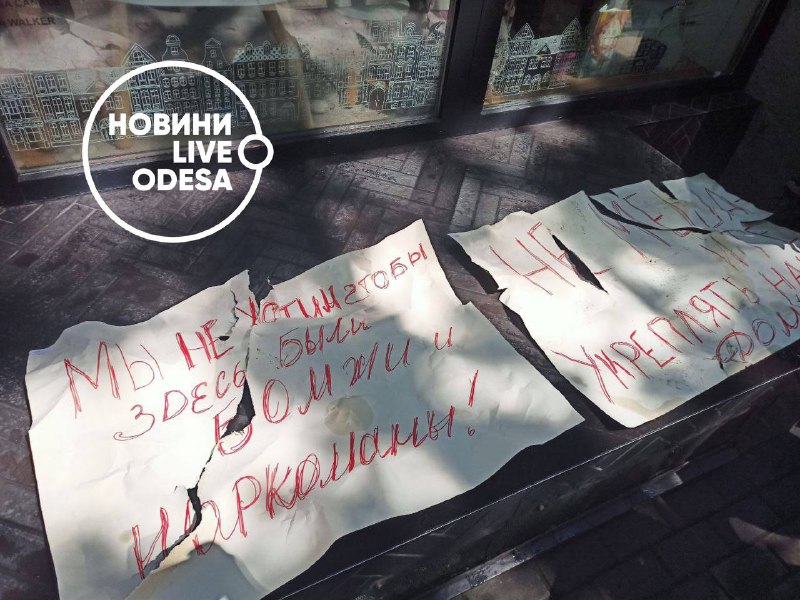 WALKER
НОВИНИ
LIVE
ODESA
МЫ НЕ ХОТИМ ЧТОБЫ
ЗДЕСЬ БЫЛИ
БОМЖИ И
НАРКОМАНЫ!
НЕ
УКРЕПЛЯТЬ
ДОМ